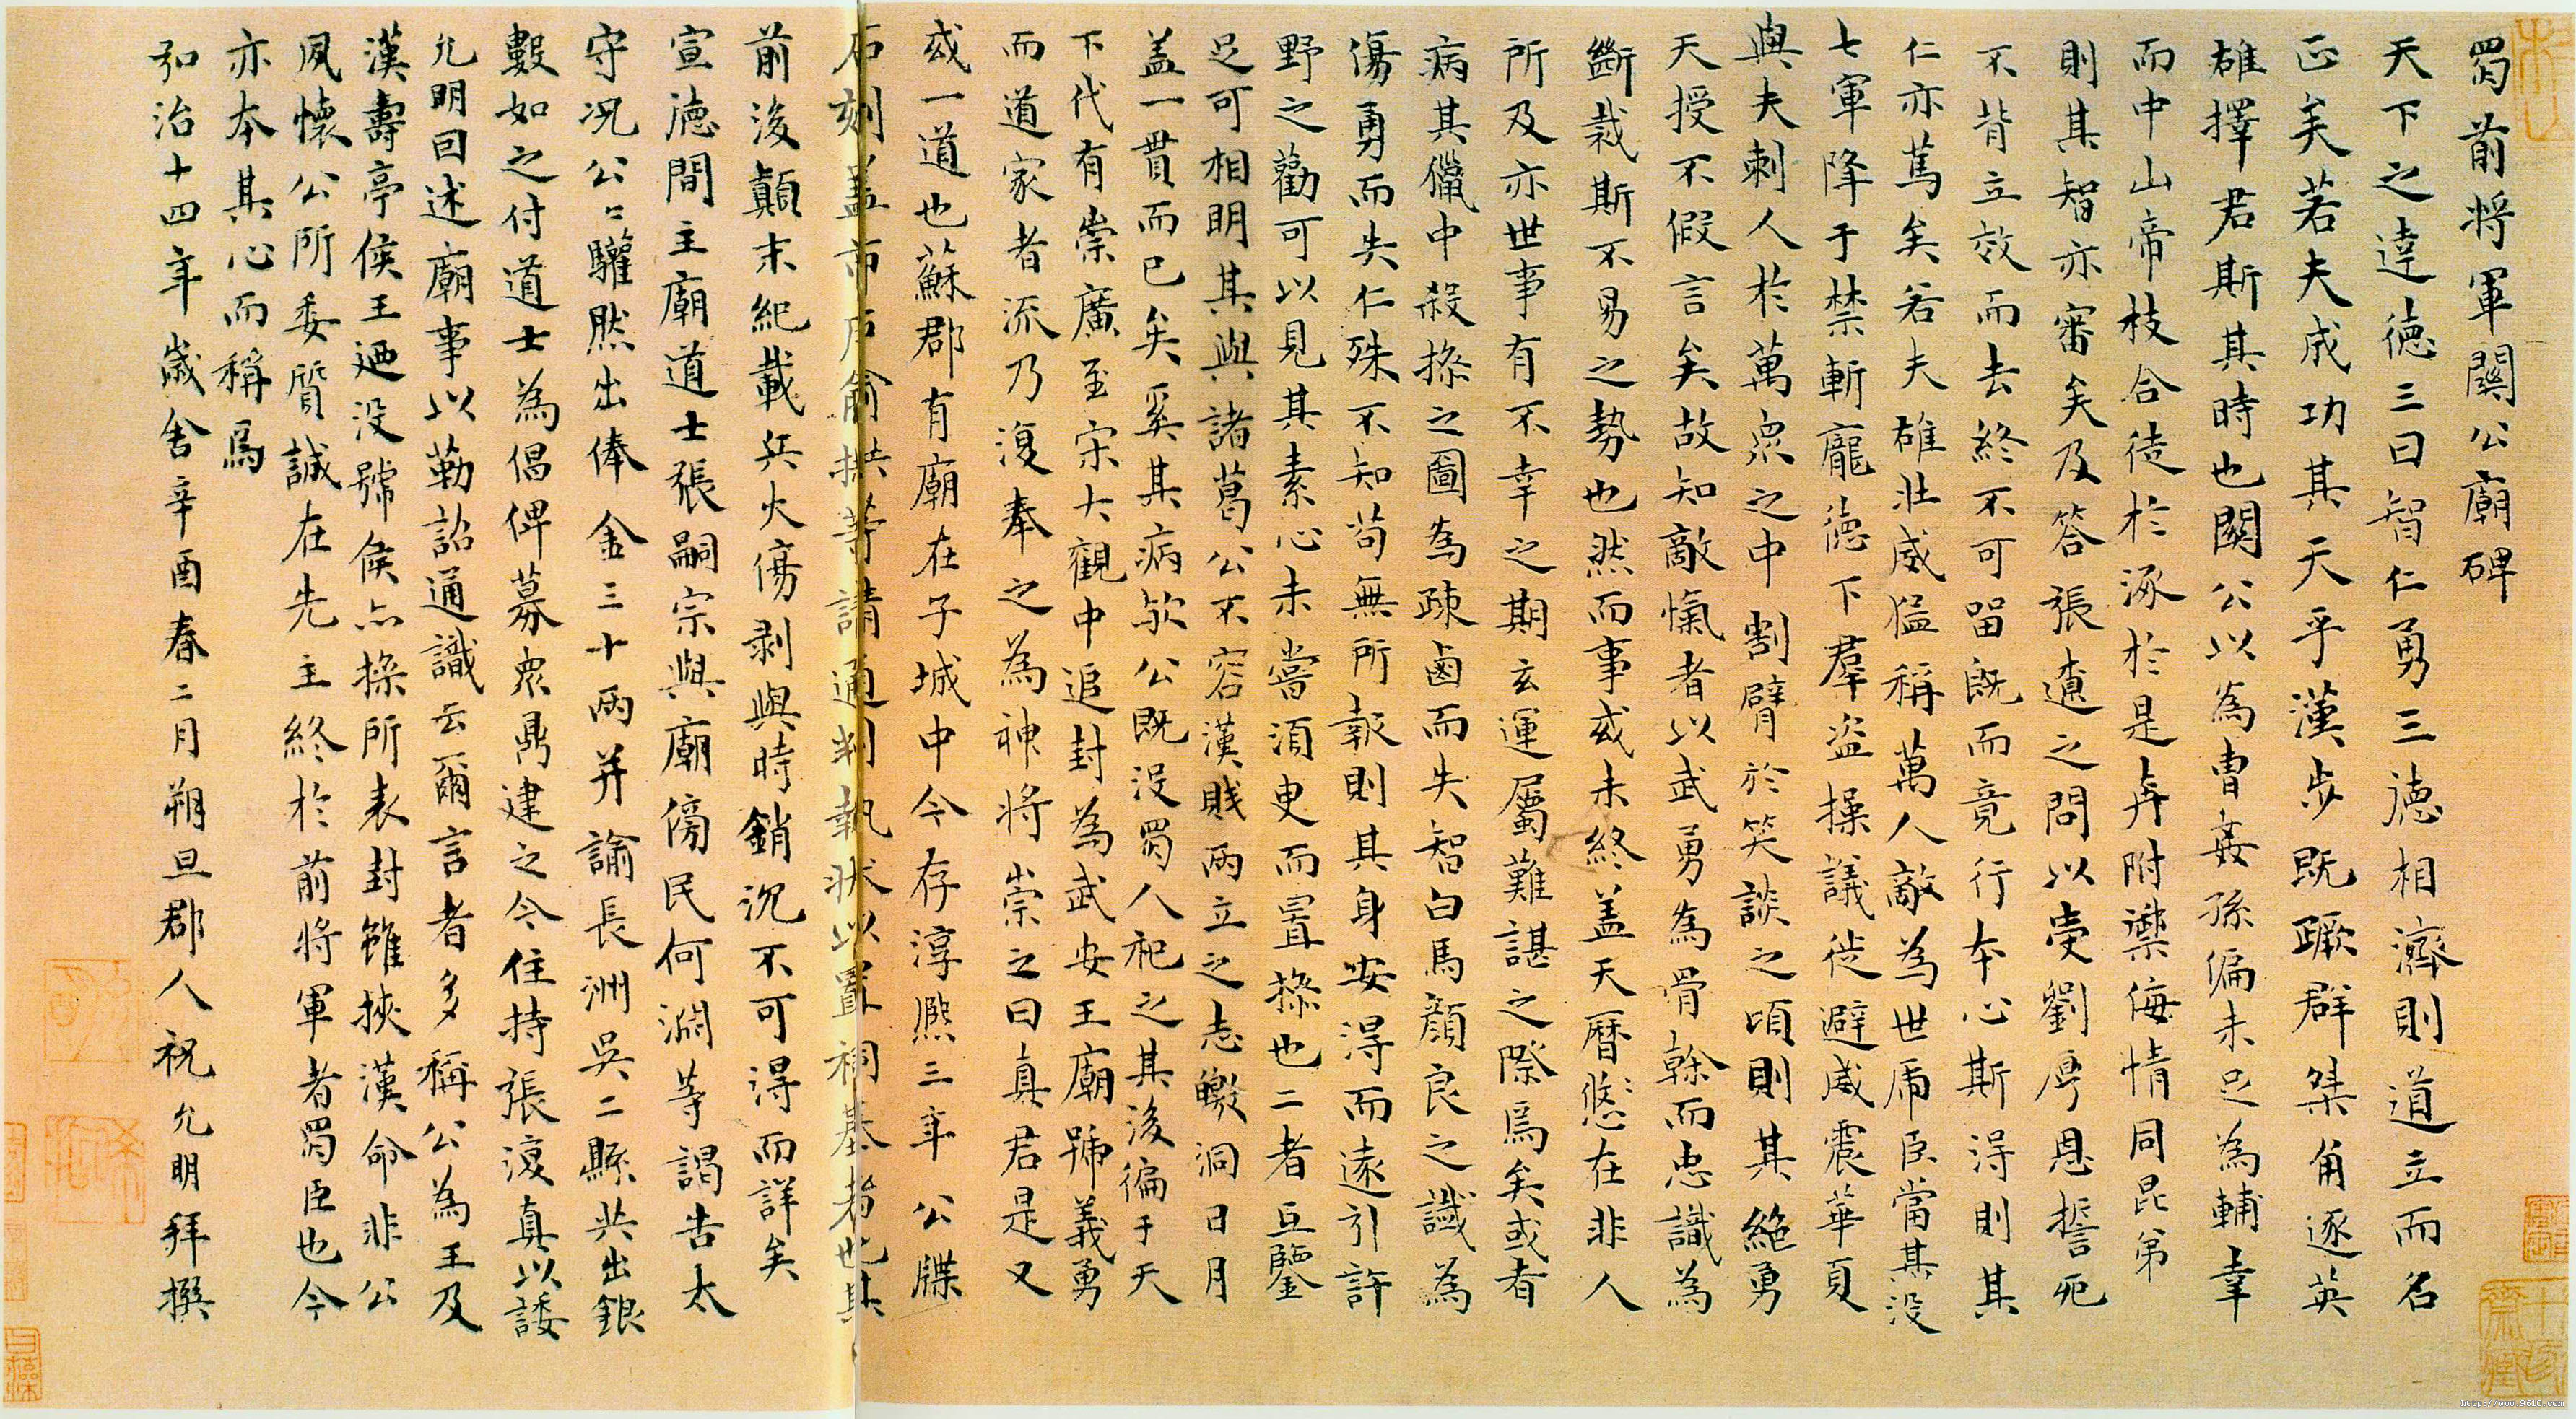 蜀前将軍關公廟碑
天下之達徳三曰智仁勇三徳相濟則道立而名
正矣若夫成功其天乎漢步既蹶群桀角逐英
雄擇君斯其時也關公以為曹姦孫偏未足為輔幸
而中山帝枝合徒於涿於是奔附禦侮情同昆弟
則其智亦審矣及答張遼之問以受劉厚恩誓死
不背立效而去終不可留既而竟行本心斯得則其
仁亦篤矣若夫雄壯威猛稱萬人敵為世虎臣當其没
七軍降于禁斬龐徳下羣盜操議徙避威震華夏
與夫刺人於萬眾之中割臂於笑談之頃則其絕勇
天授不假言矣故知敵愾者以武勇為骨榦而忠識為
斷裁斯不易之勢也然而事或未終盖天曆悠〻在非人
所及亦世事有不幸之期玄運屬難諶之際焉矣或者
病其獵中殺操之圖為疎鹵而失智白馬顔良之讖為
傷勇而失仁殊不知苟無所報則其身安得而遠引許
野之勸可以見其素心未嘗須臾而置操也二者互鑒
足可相明其與諸葛公不容漢賊兩立之志皦洞日月
盖一貫而已矣奚其病欤公既没蜀人祀之其後徧于天
下代有崇廣至宋大觀中追封為武安王廟號義勇
而道家者流乃復奉之為神将崇之曰真君是又
或一道也蘇郡有廟在子城中今存淳熙三年公牒
石刻盖市户俞拱等請通判執状以置祠基者也其
前後顛末紀載兵火傷剥與時銷沉不可得而詳矣
宣徳間主廟道士張嗣宗與廟傍民何淵等謁告太
守况公〻驩然出俸金三十兩并諭長洲吳二縣共出銀
數如之付道士為倡俾募眾鼎建之今住持張復真以諉
允明回述廟事以勒詔通識云爾言者多稱公為王及
漢壽亭侯王廼没號侯亦操所表封雖挾漢命非公
夙懷公所委質誠在先主終於前将軍者蜀臣也今
亦本其心而稱焉
弘治十四年歲舍辛酉春二月朔旦郡人祝允明拜撰
http://www.9610.com